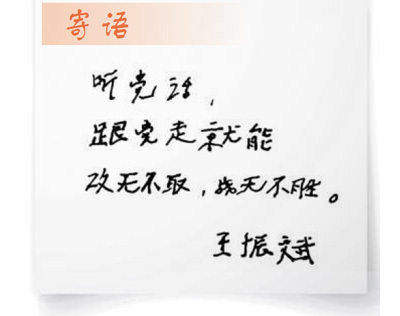 寄语
听党话,
跟党走就能
攻无不取,战无不胜。
王振斌